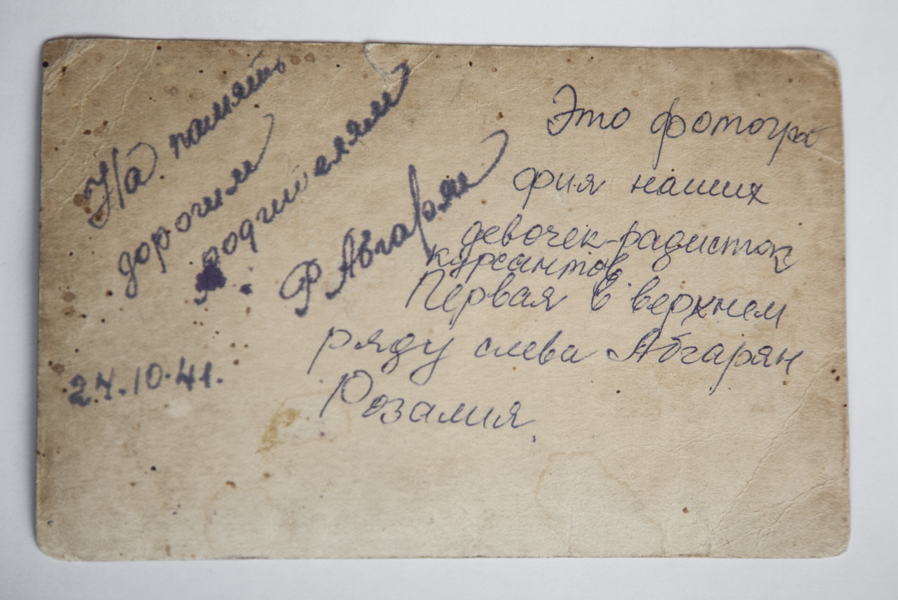 На память
дорогим
родителям
Р Абгарян
27.10.41.
Это фотогра
фия наших
девочек-радисток
курсантов.
Первая в верхнем
ряду слева Абгарян
Розалия.